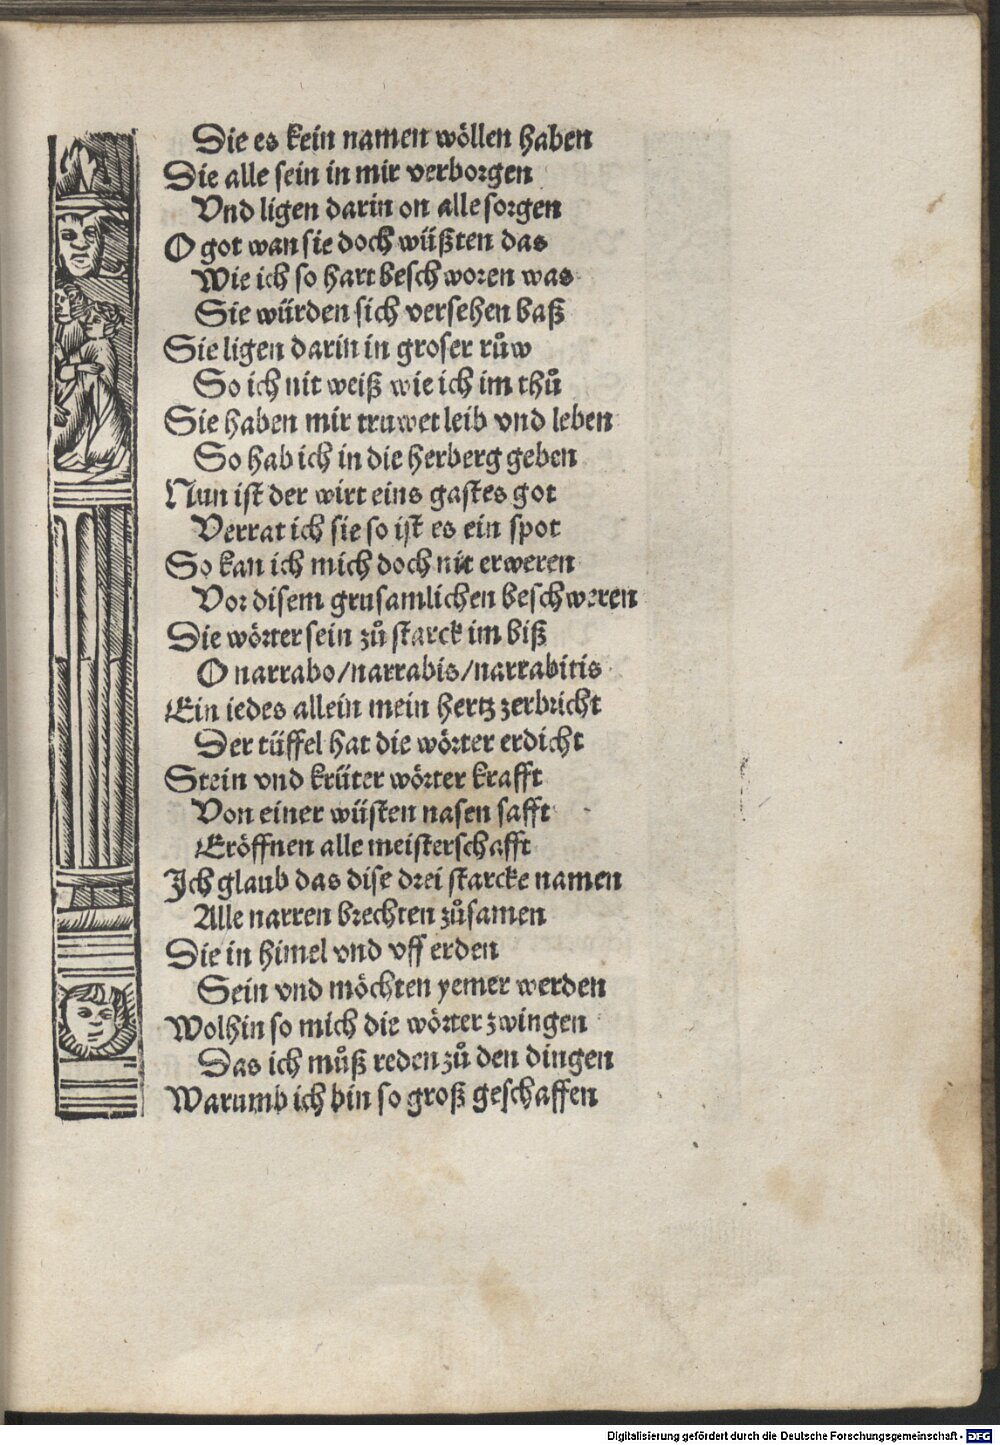 Die es kein namen wöllen haben
Die alle sein in mir verborgen
Vnd ligen darin on alle sorgen
O got wan sie doch wüßten das
Wie ich so hart beschworen was
Sie würden sich versehen baß
Sie ligen darin in groser růw
So ich nit weiß wie ich im thů
Sie haben mir truwet leib vnd leben
So hab ich in die herberg geben
Nun ist der wirt eins gastes got
Verrat ich sie so ist es ein spot
So kan ich mich doch nit erweren
Vor disem grusamlichen beschweren
Die wörter sein zů starck im biß
O narrabo/narrabis/narrabitis
Ein iedes allein mein hertz zerbricht
Der tüffel hat die wörter erdicht
Stein vnd krüter wörter krafft
Von einer wüsten nasen safft
Eröffnen alle meisterschafft
Ich glaub das dise drei starcke namen
Alle narren brechten zůsamen
Die in himel vnd vff erden
Sein vnd möchten yemer werden
Wolhin so mich die wörter zwingen
Das ich můß reden zů den dingen
Warumb ich bin so groß geschaffen
Digitalisierung gefördert durch die Deutsche Forschungsgemeinschaft - DFG